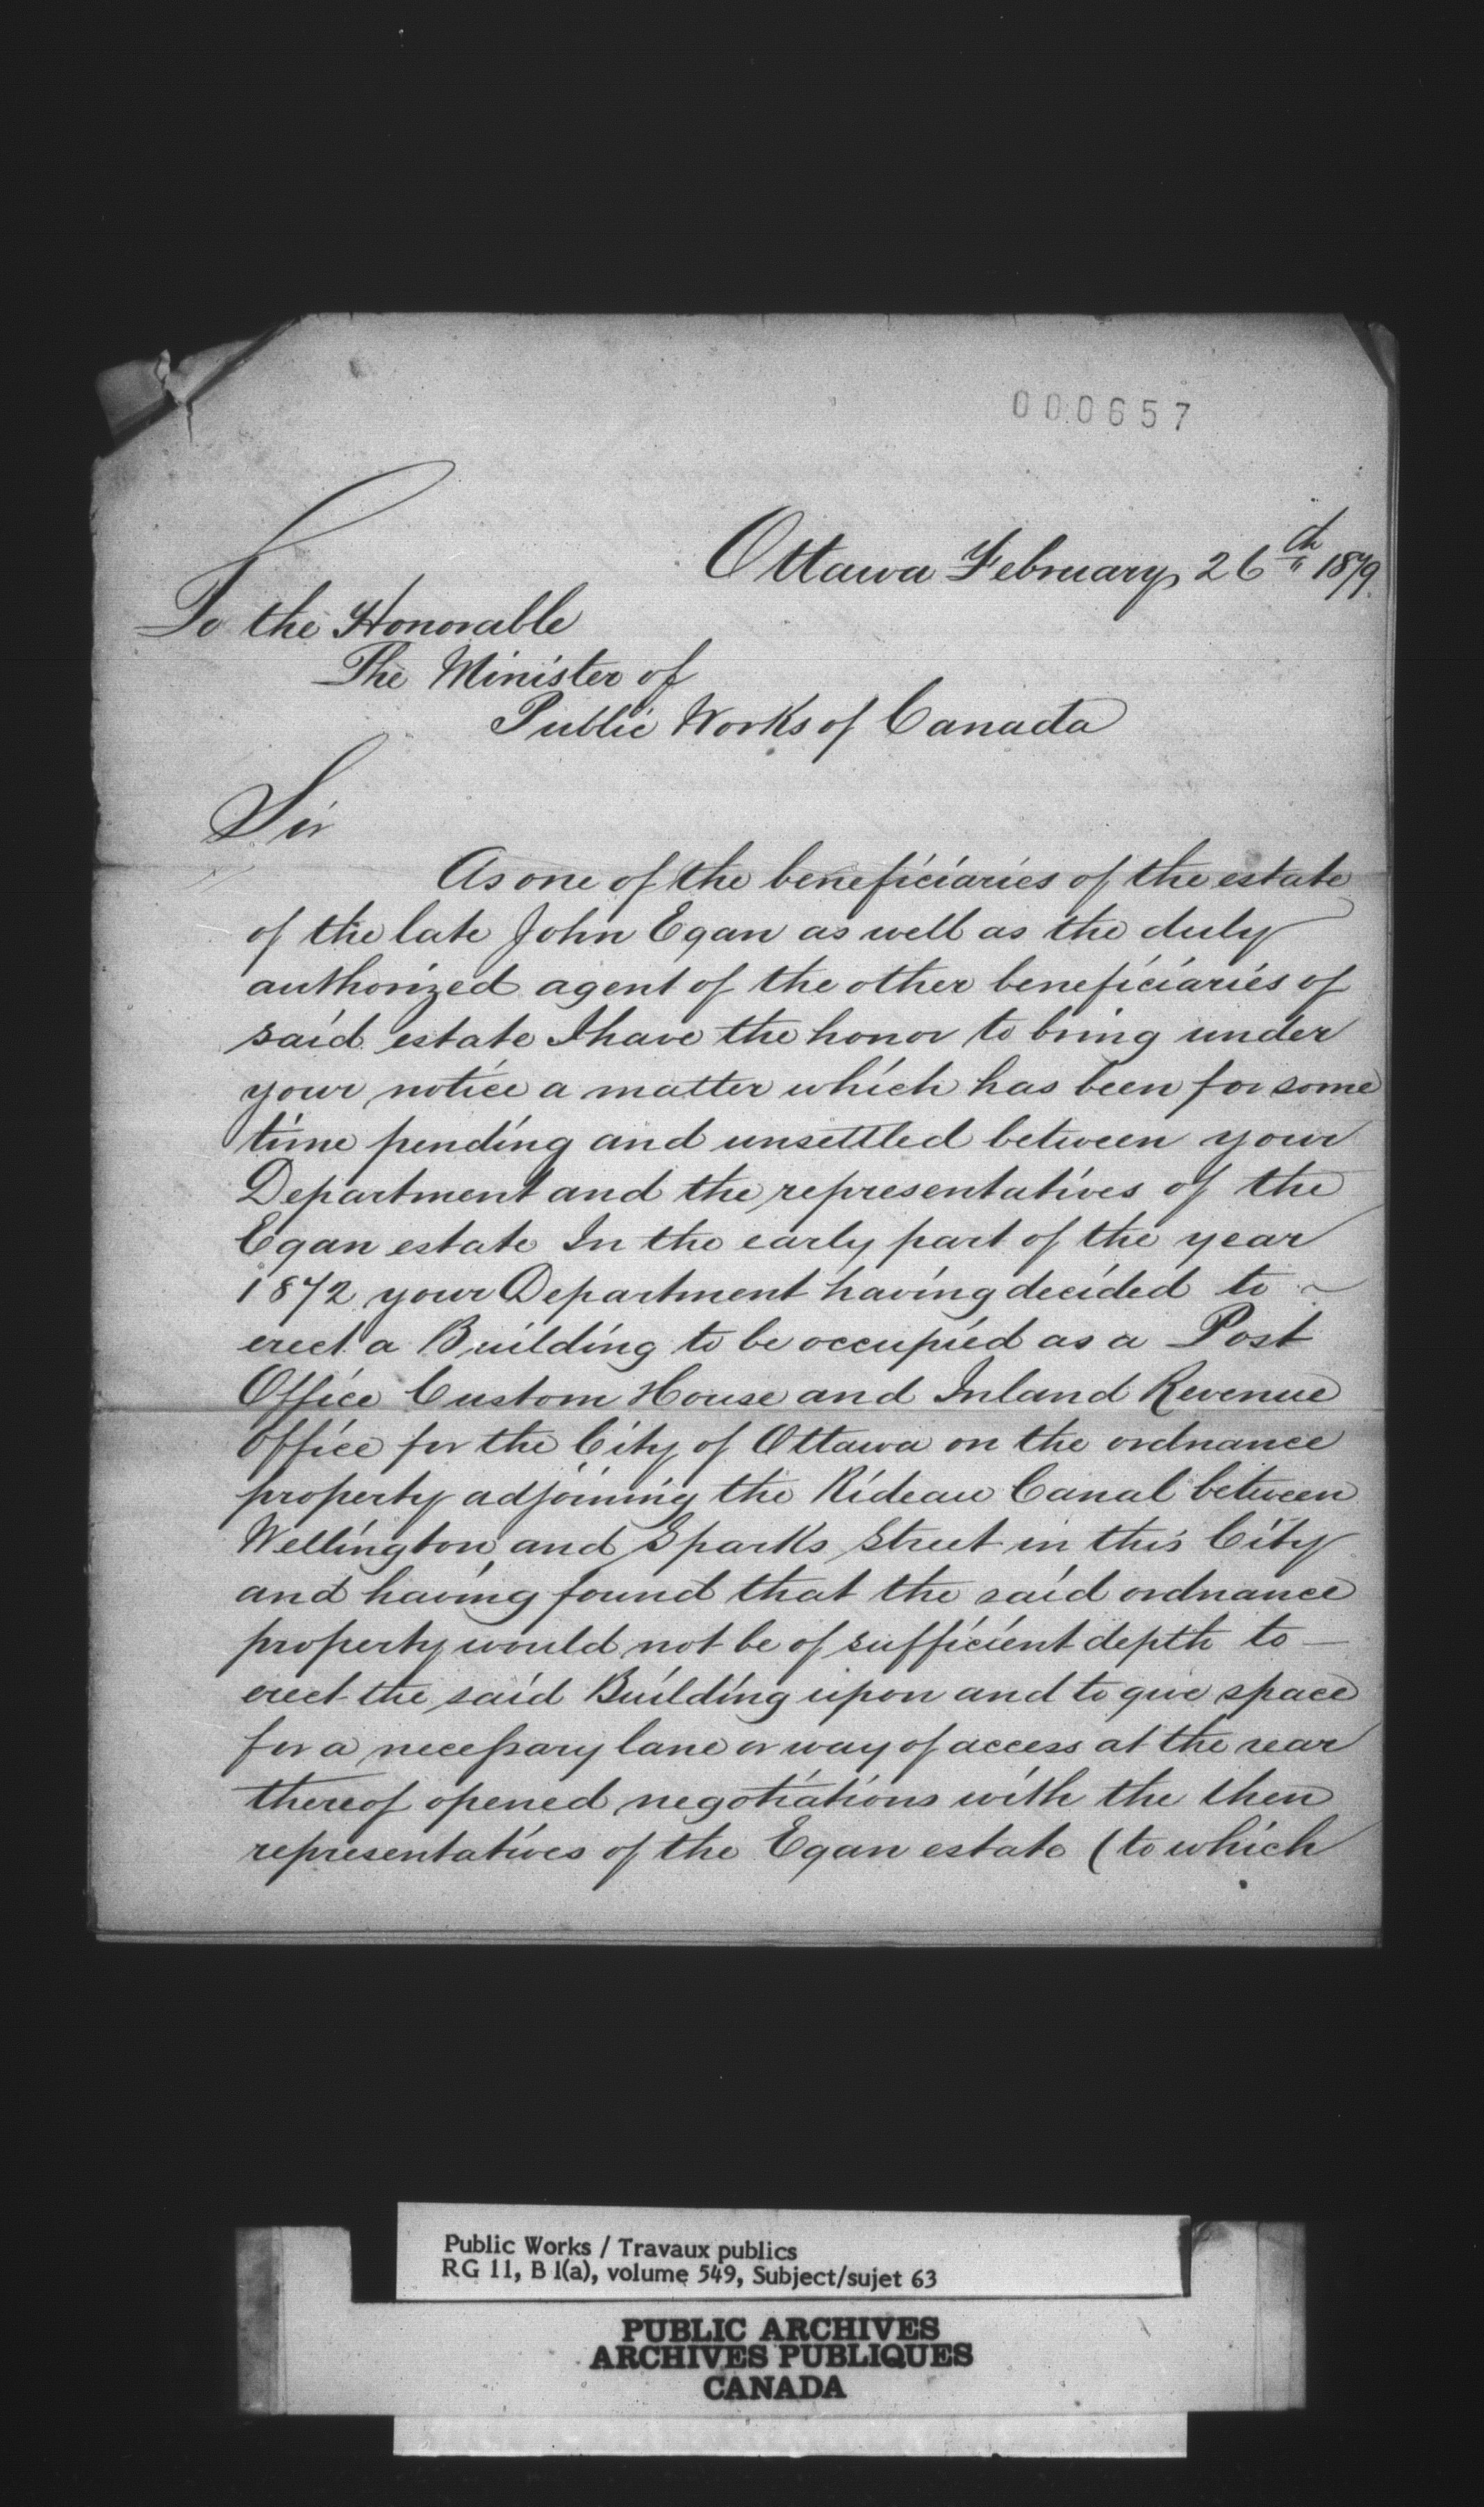 000657
Ottawa February 26th 1879.
To the Honorable
The Minister of
Public Works of Canada
Sir
As one of the beneficiaries of the estate
of the late John Egan as well as the duly
authorized agent of the other beneficiaries of
said estate I have the honor to bring under
your notice a matter which has been for some
time pending and unsettled between your
Department and the representatives of the
Egan estate In the early part of the year
1872 your Department having decided to ~
erect a Building to be occupied as a Post
Office Custom House and Inland Revenue
Office for the City of Ottawa on the ordnance
property adjoining the Rideau Canal between
Wellington and Sparks Street in this City
and having found that the said ordnance
property would not be of sufficient depth to —
erect the said Building upon and to give space
for a necessary lane or way of access at the rear
thereof opened negotiations with the then
representatives of the Egan estate (to which
Public Works / Travaux publics
RG 11, B 1(a), volume 549, Subject/sujet 63
PUBLIC ARCHIVES
ARCHIVES PUBLIQUES
CANADA